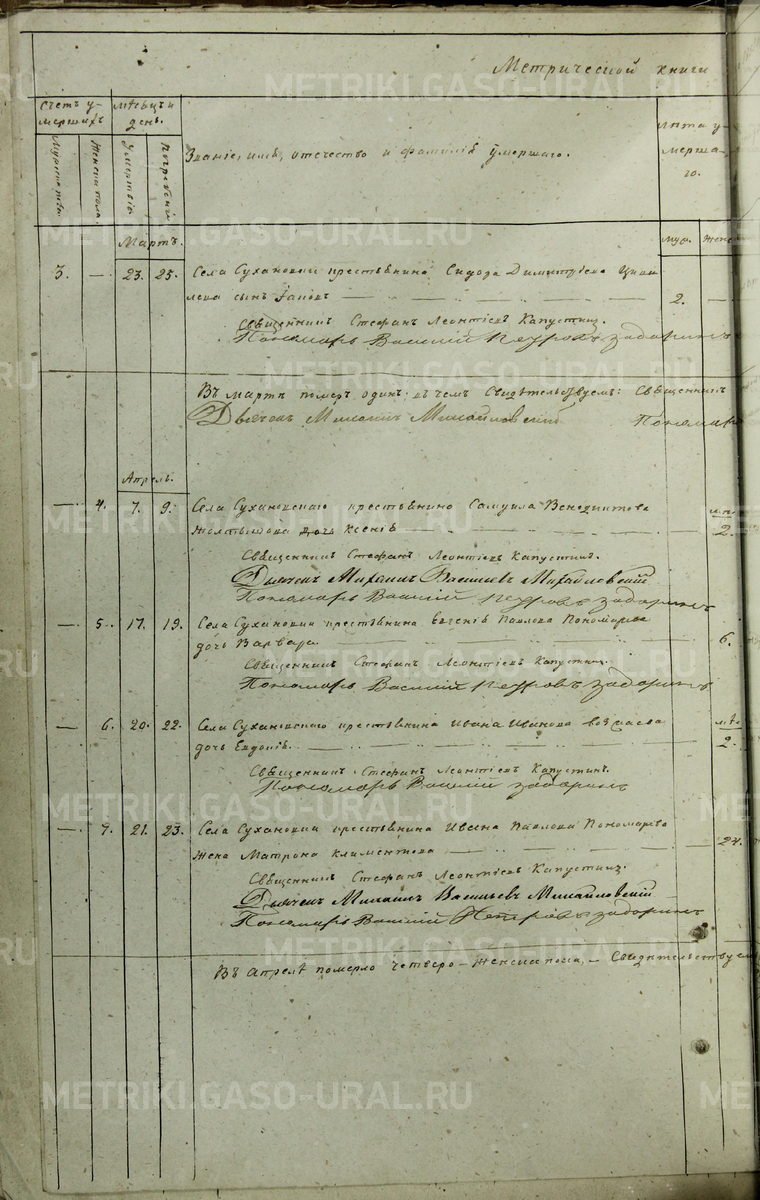 Метрической книги
Счетъ у-
мершихъ
Мужескаго.
Женска пола.
мѣсяцъ и
день.
Умертвія
Погребенія
Званіе, имя, отечество и фамилія умершаго.
лѣта у-
мерша-
го.
Мартъ.
Муж. Женс
3. — 23. 25. Села Сухановки крестьянина Сидора Димитріева
лева сынъ Іаковъ 2. —
Священникъ Стефанъ Леонтіевъ Капустинъ.
Пономарь Василій Петровъ Задоринъ
Въ Мартѣ померъ одинъ въ чемъ Свидѣтельствуемъ: Священникъ
Дьячекъ Михаилъ Михайловскій Пономарь
Апрель.
— 4. 7. 9. Села Сухановскаго крестьянина Самуила Венедиктова
дочь Ксенія 2.
Священникъ Стефанъ Леонтіевъ Капустинъ.
Дьячекъ Михаилъ Васильевъ Михайловскій
Пономарь Василій Петровъ Задоринъ
— 5. 17. 19. Села Сухановки крестьянина Евгенія Павлова Пономарева
дочь Варвара 6.
Священникъ Стефанъ Леонтіевъ Капустинъ.
Пономарь Василій Петровъ Задоринъ
— 6. 20. 22. Села Сухановскаго крестьянина Ивана Иванова
дочь Евдокія. 2.
Священникъ Стефанъ Леонтіевъ Капустинъ.
Пономарь Василій Задоринъ
— 7. 21. 23. Села Сухановки крестьянина Ивана Павлова Пономарева
жена Матрона Климентова 24.
Священникъ Стефанъ Леонтіевъ Капустинъ.
Дьячекъ Михаилъ Васильевъ Михайловскій
Пономарь Василій Петровъ Задоринъ
Въ Апрелѣ померло четверо — Женска пола, — Свидѣтельствуем
METRIKI.GASO-URAL.RU